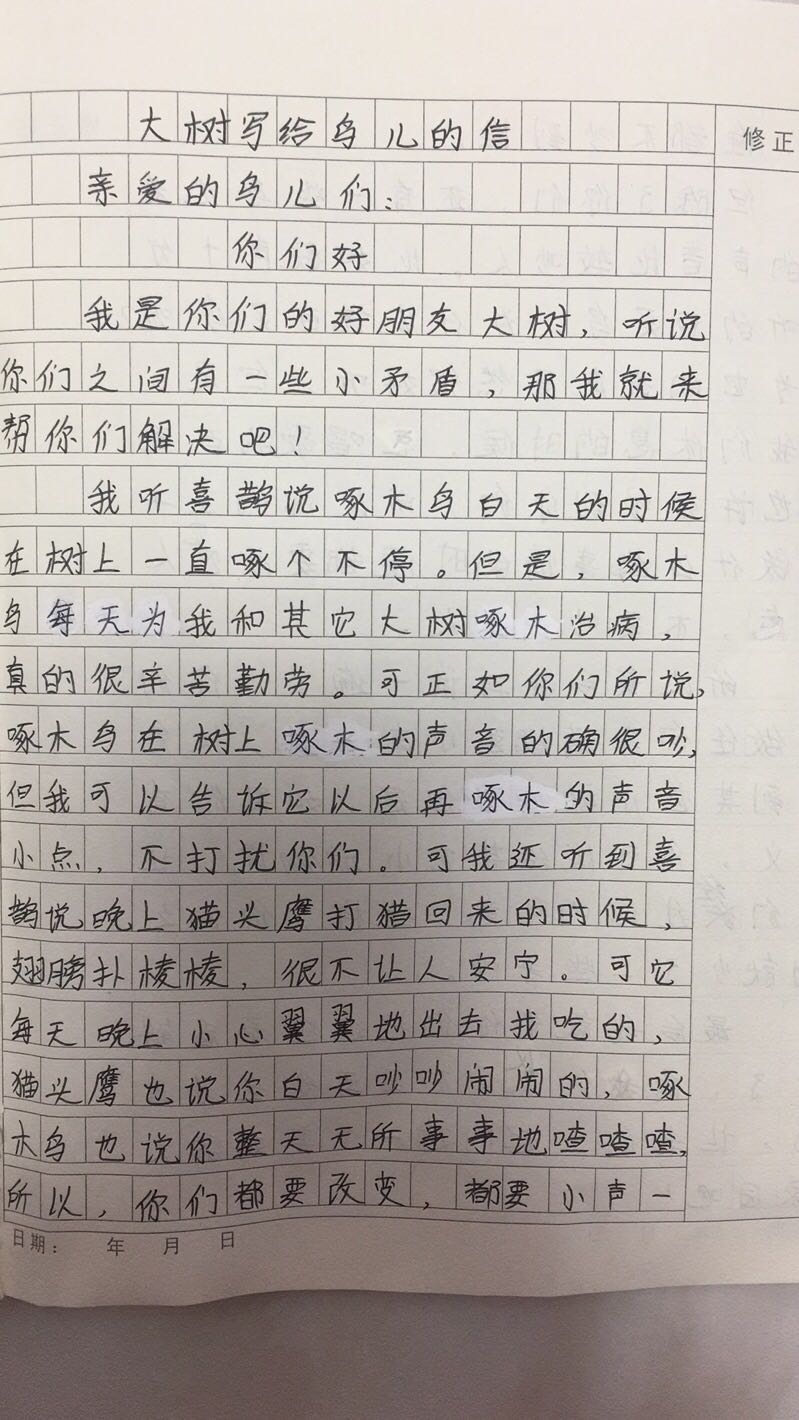 大树写给鸟儿的信
修正
亲爱的鸟儿们：
你们好
我是你们的好朋友大树，听说
你们之间有一些小矛盾，那我就来
帮你们解决吧！
我听喜鹊说啄木鸟白天的时候
在树上一直啄个不停。但是，啄木
鸟每天为我和其它大树啄木治病，
真的很辛苦勤劳。可正如你们所说，
啄木鸟在树上啄木的声音的确很吵，
但我可以告诉它以后再啄木的声音
小点，不打扰你们。可我还听到喜
鹊说晚上猫头鹰打猎回来的时候，
翅膀扑棱棱，很不让人安宁。可它
每天晚上小心翼翼地出去找吃的，
猫头鹰也说你白天吵吵闹闹的，啄
木鸟也说你整天无所事事地喳喳喳，
所以，你们都要改变，都要小声一
日期： 年 月 日